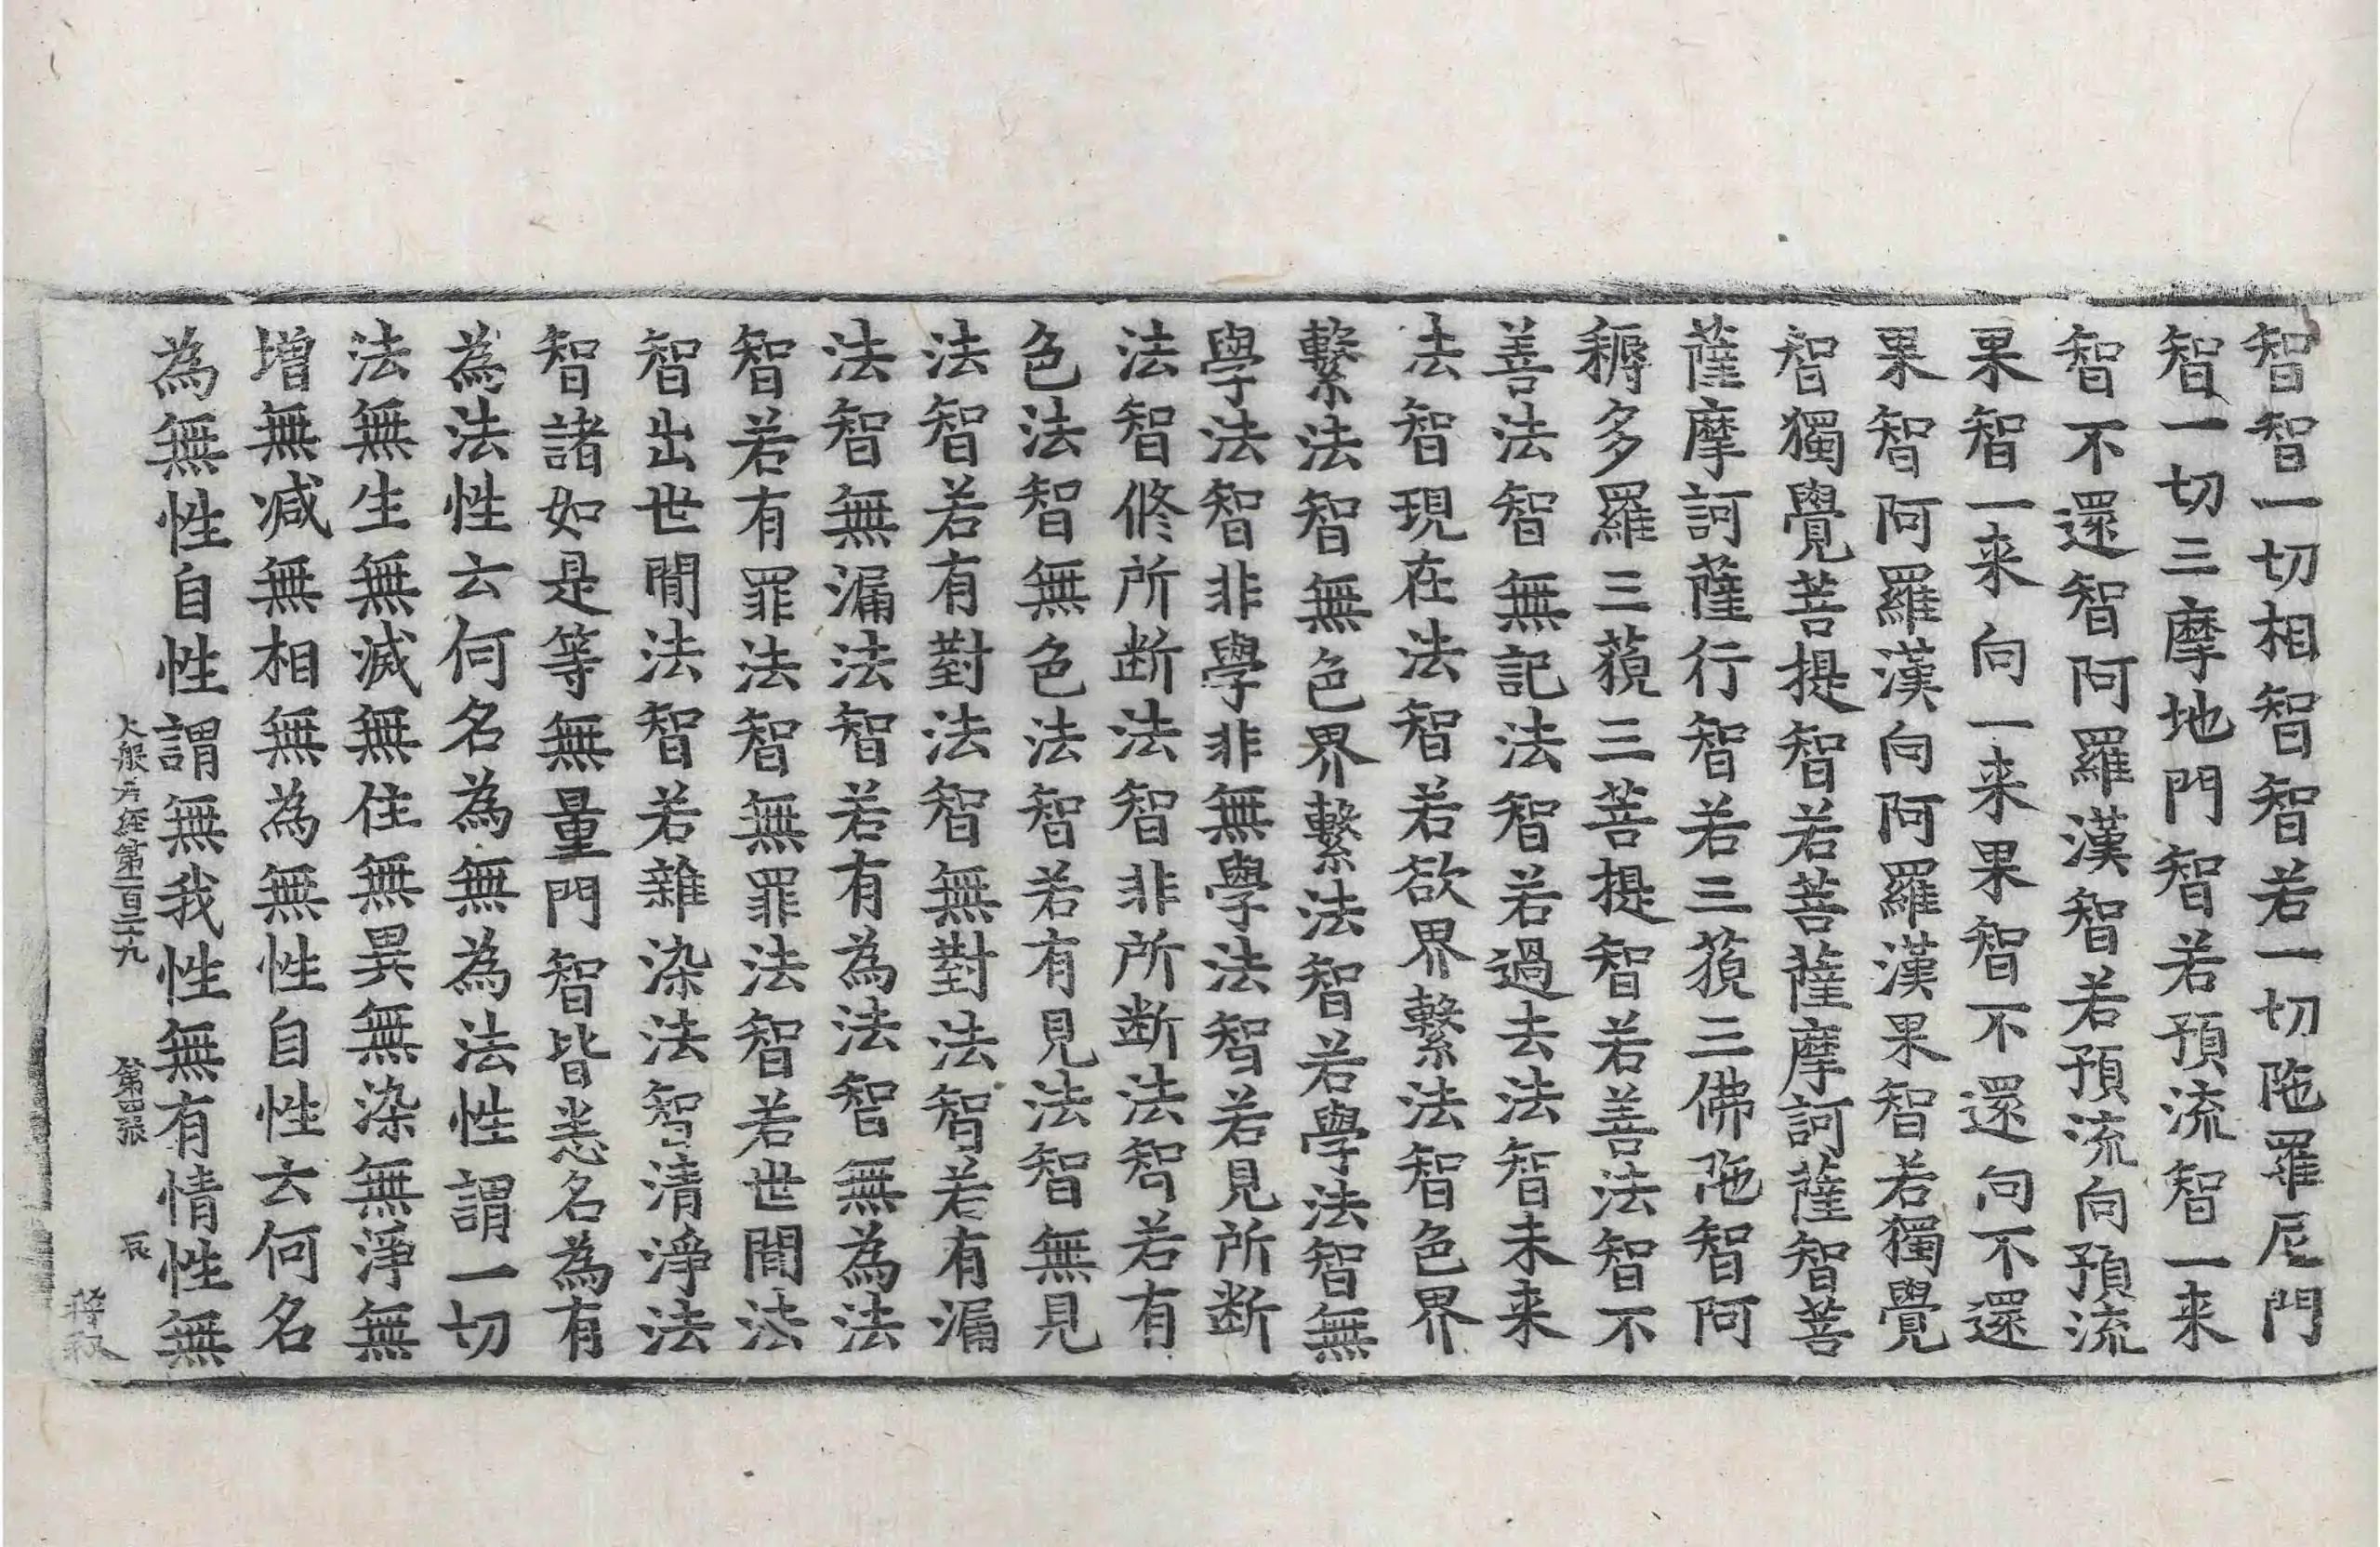 智智一切相智智若一切陁羅尼門
智一切三摩地門智若預流智一来
智不還智阿羅漢智若預流向預流
果智一来向一来果智不還向不還
果智阿羅漢向阿羅漢果智若獨覺
智獨覺菩提智若菩薩摩訶薩智菩
薩摩訶薩行智若三藐三佛陁智阿
耨多羅三藐三菩提智若善法智不
善法智無記法智若過去法智未来
法智現在法智若欲界繫法智色界
繫法智無色界繫法智若學法智無
學法智非學非無學法智若見所断
法智修所断法智非所断法智若有
色法智無色法智若有見法智無見
法智若有對法智無對法智若有漏
法智無漏法智若有為法智無為法
智若有罪法智無罪法智若世間法
智出世間法智若雜染法智清淨法
智諸如是等無量門智皆悉名為有
為法性云何名為無為法性謂一切
法無生無滅無住無異無染無淨無
增無减無相無為無性自性云何名
為無性自性謂無我性無有情性無
大般若經第一百二十九 第四張